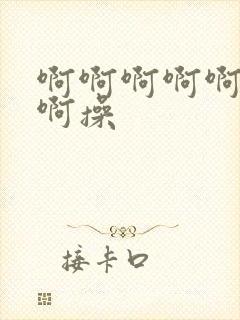 啊啊啊啊啊
啊操
接卡口